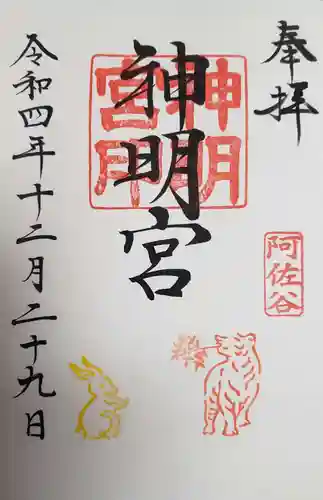 奉拝
阿佐谷
神明宮
神明宮印
令和四年十二月二十九日